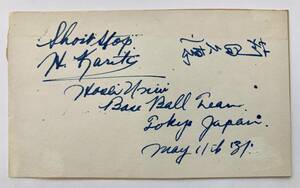 Short Stop
H. Karita
Hosei Univ
Base Ball Team
Tokyo Japan.
May 11th '31.
苅田久徳